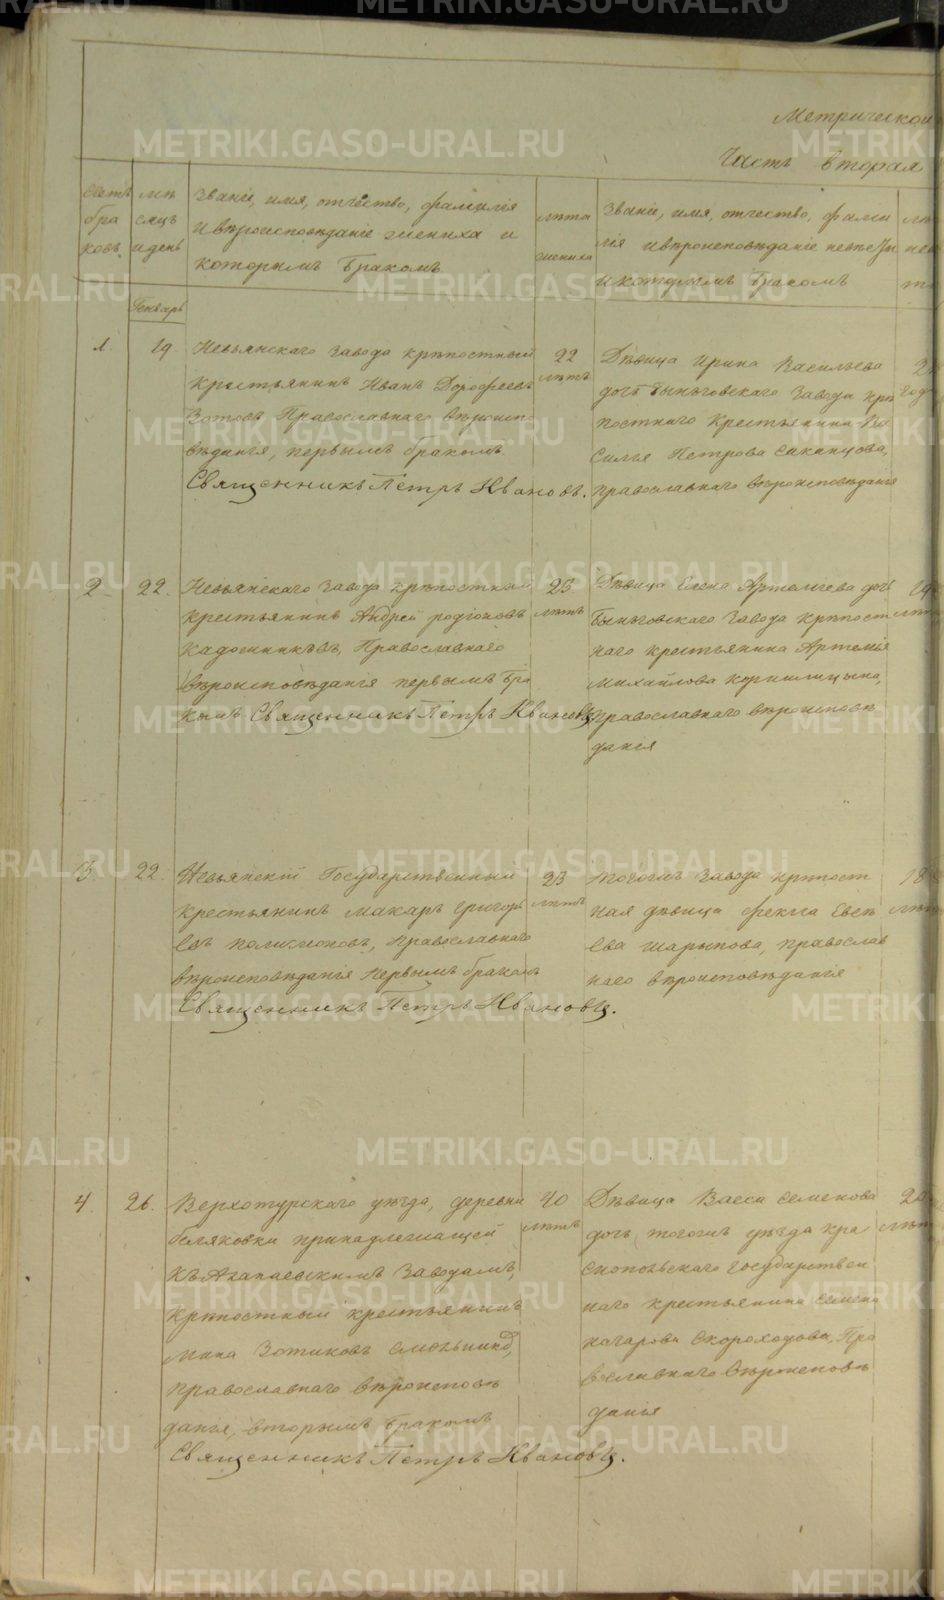 METRIKI.GASO-URAL.RU
Метрической
Часть вторая
Счетъ бра ковъ
мѣ сяцъ и день
Званіе, имя, отчество, фамилія
и вѣроисповѣданіе жениха и
которымъ бракомъ
лѣта жениха
Званіе, имя, отчество, фами
лія и вѣроисповѣданіе невѣсты
и которымъ бракомъ
Генварь
1. 19. Невьянскаго завода крѣпостный
крестьянинъ Иванъ Дорофеевъ
Зотовъ Православнаго вѣроиспо
вѣданія, первымъ бракомъ.
Священникъ Петръ Ивановъ.
22
лѣтъ
Дѣвица Ирина Васильева
дочь Быньговскаго завода крѣ
постнаго крестьянина Ва
силья Петрова
православнаго вѣроисповѣданія
2 22. Невьянскаго завода крѣпостный
крестьянинъ Андрей Родіоновъ
Православнаго
вѣроисповѣданія первымъ бра
комъ Священникъ Петръ Ивановъ
23
лѣтъ
Дѣвица Елена Артемьева дочь
Быньговскаго завода крѣпост
наго крестьянина Артемія
Михайлова
православнаго вѣроисповѣ
данія
3. 22. Невьянскій Государственный
крестьянинъ Макаръ Григорь
евъ Православнаго
вѣроисповѣданія первымъ бракомъ
Священникъ Петръ Ивановъ.
23
лѣтъ
тогожъ завода крѣпост
ная дѣвица Фекла Евсѣ
ева Шарыпова, православ
наго вѣроисповѣданія
18
4. 26. Верхотурскаго уѣзда, деревни
Беляковки принадлежащей
къ Алапаевскимъ заводамъ,
крѣпостный крестьянинъ
Мина Зотиковъ
православнаго вѣроисповѣ
данія, вторымъ бракомъ
Священникъ Петръ Ивановъ.
40
лѣтъ
Дѣвица Васса Семенова
дочь тогожъ уѣзда Кра
снопольскаго государствен
наго крестьянина Семена
Скороходова, Пра
вославнаго вѣроисповѣ
данія